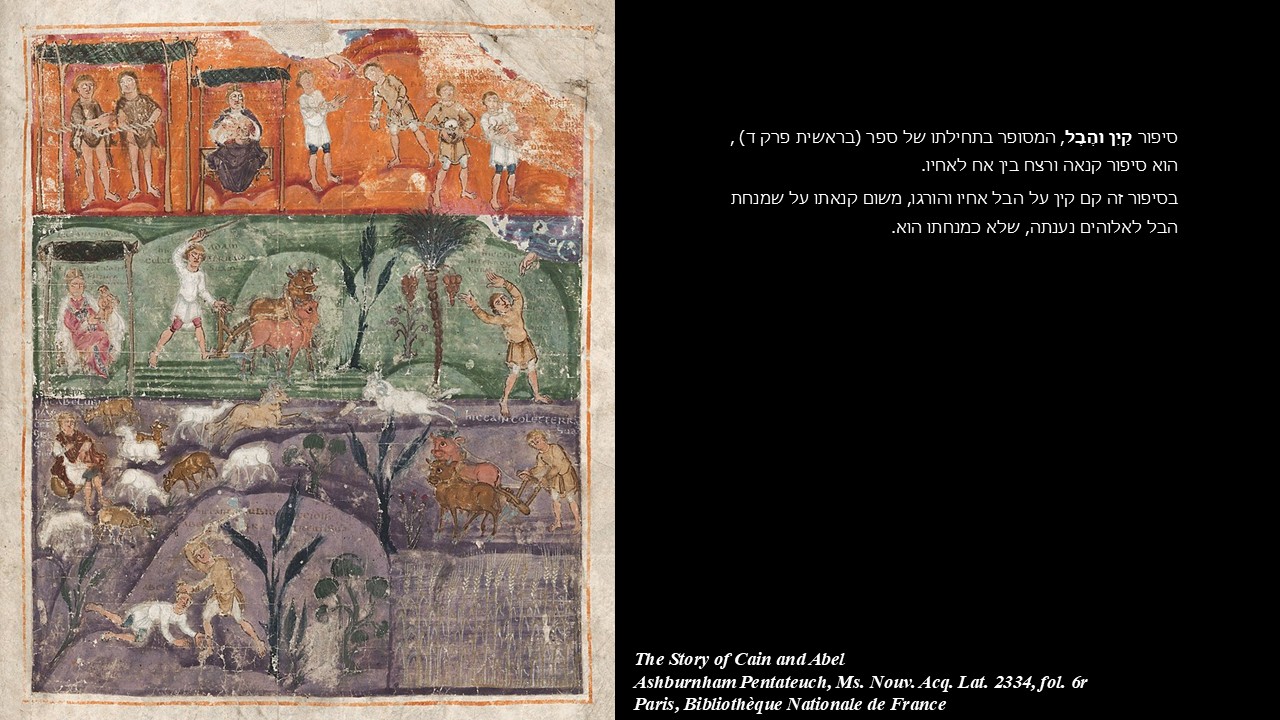 סיפור קַיִן והֶבֶל, המסופר בתחילתו של ספר (בראשית פרק ד) ,
הוא סיפור קנאה ורצח בין אח לאחיו.
בסיפור זה קם קין על הבל אחיו והורגו, משום קנאתו על שמנחת
הבל לאלוהים נענתה, שלא כמנחתו הוא.
hiccain COLETTERR
The Story of Cain and Abel
Ashburnham Pentateuch, Ms. Nouv. Acq. Lat. 2334, fol. 6r
Paris, Bibliothèque Nationale de France